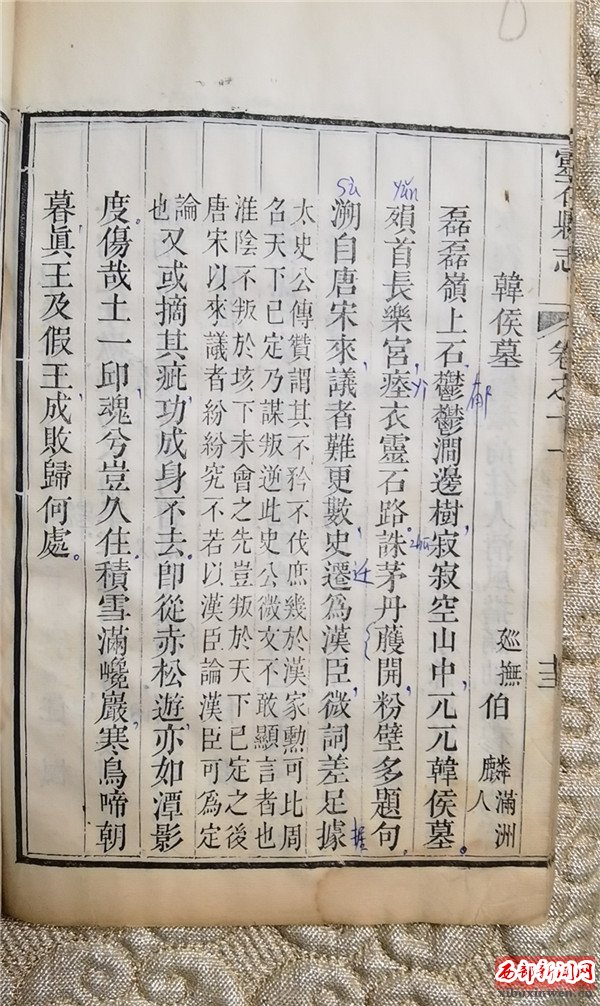 靈石縣志 卷之十一 十三
韓侯墓 廵撫伯麟 滿洲人
磊磊嶺上石鬱鬱澗邊樹寂寂空山中元元韓侯墓。
殞首長樂宮瘞衣靈石路誅茅丹雘開粉壁多題句
溯自唐宋來議者難更數史遷爲漢臣微詞差足據
太史公傳贊謂其不矜不伐庶幾於漢家勳可比周
召天下已定乃謀叛逆此史公微文不敢顯言者也
淮陰不叛於垓下未會之先豈叛於天下已定之後
唐宋以來議者紛紛究不若以漢臣論漢臣可爲定
論也 又或摘其疵功成身不去卽從赤松遊亦如潭影
度傷哉土一邱魂兮豈久住積雪滿巉巖寒鳥啼朝
暮眞王及假王成敗歸何處。
西部新闻网
xibuxinwen.cn